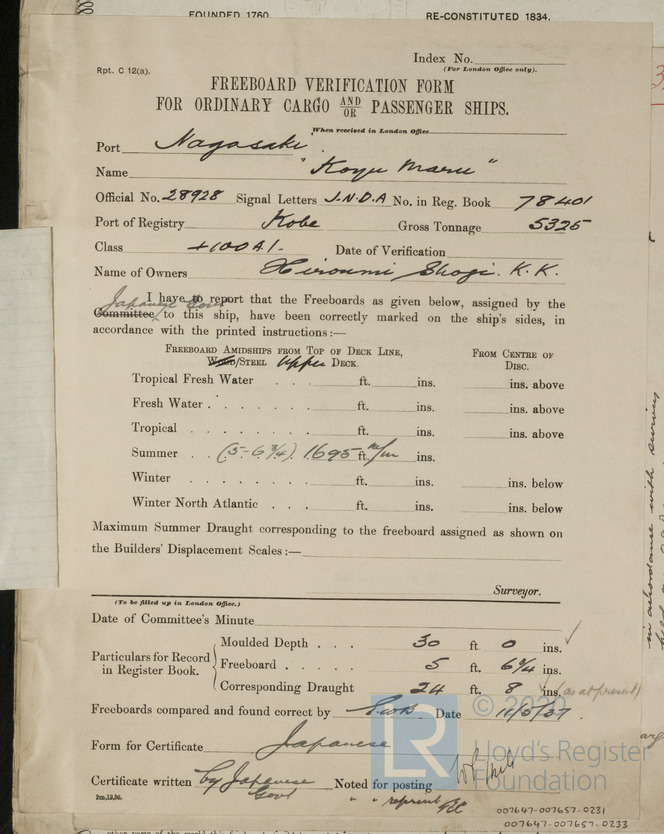 FOUNDED 1760. RE-CONSTITUTED 1834.
Index No.
(For London Office only).
Rpt. C 12(a).
FREEBOARD VERIFICATION FORM
FOR ORDINARY CARGO AND/OR PASSENGER SHIPS.
When received in London Office
Port Nagasaki.
Name "Koyu Maru"
Official No. 28928 Signal Letters J.N.D.A No. in Reg. Book 78401
Port of Registry Kobe Gross Tonnage 5325
Class +100A1. Date of Verification
Name of Owners Hiroumi Shoji. K.K.
I have to report that the Freeboards as given below, assigned by the
Japanese Govt
Committee to this ship, have been correctly marked on the ship's sides, in
accordance with the printed instructions:—
FREEBOARD AMIDSHIPS FROM TOP OF DECK LINE, FROM CENTRE OF
WOOD/STEEL Upper DECK. DISC.
Tropical Fresh Water . . . ft. ins. ins. above
Fresh Water . . . . . . . ft. ins. ins. above
Tropical . . . . . . . ft. ins. ins. above
Summer . . (5-6¾) 1695 ft. m/m ins.
Winter . . . . . . . ft. ins. ins. below
Winter North Atlantic . . . ft. ins. ins. below
Maximum Summer Draught corresponding to the freeboard assigned as shown on
the Builders' Displacement Scales:—
Surveyor.
(To be filled up in London Office.)
Date of Committee's Minute
Particulars for Record in Register Book.
Moulded Depth . . . 30 ft. 0 ins. ✓
Freeboard . . . . . 5 ft. 6¾ ins.
Corresponding Draught 24 ft. 8 ins. (as at present)
Freeboards compared and found correct by Date 11/5/37
Form for Certificate Japanese
Certificate written by Japanese Govt Noted for posting
2m,12,36.
© 2020
LR
Lloyd's Register
Foundation
007647-007657-0231
007647-007657-0233
in accordance with survey